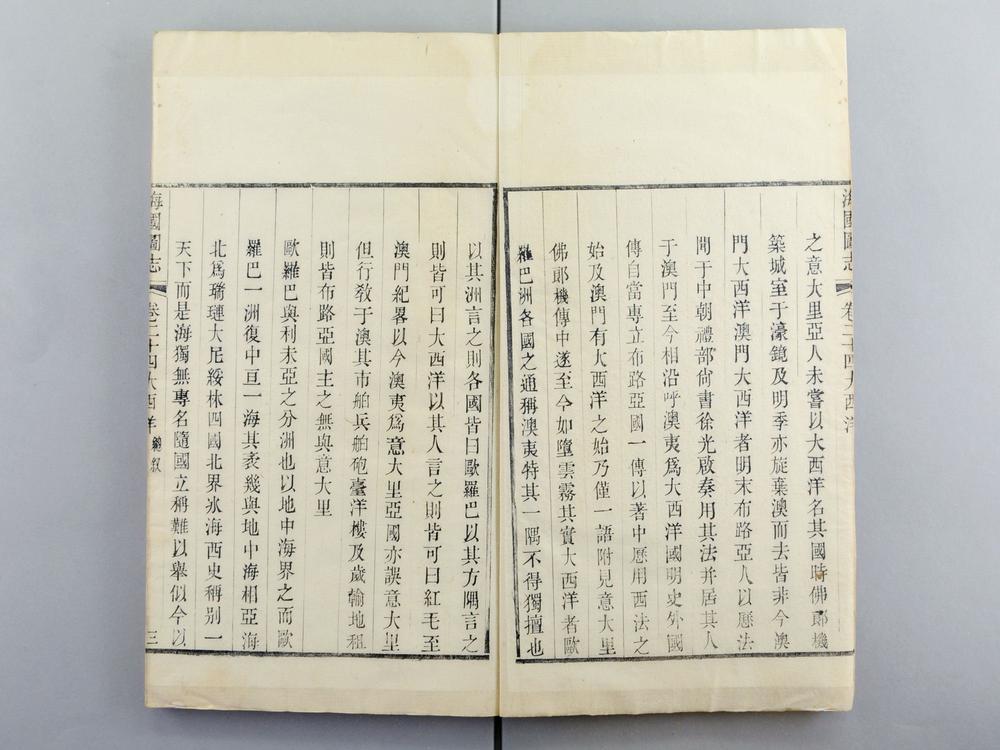 海國圖志 卷二十四大西洋
之意大里亞人未嘗以大西洋名其國時佛郎機
築城室于濠鏡及明季亦旋棄澳而去皆非今澳
門大西洋澳門大西洋者明末布路亞人以曆法
聞于中朝禮部尙書徐光啟奏用其法并居其人
于澳門至今相沿呼澳夷爲大西洋國明史外國
傳自當專立布路亞國一傳以著中歷用西法之
始及澳門有大西洋之始乃僅一語附見意大里
佛郎機傳中遂至今如墮雲霧其實大西洋者歐
羅巴洲各國之通稱澳夷特其一隅不得獨擅也
以其洲言之則各國皆曰歐羅巴以其方隅言之
則皆可曰大西洋以其人言之則皆可曰紅毛至
澳門紀畧以今澳夷爲意大里亞國亦誤意大里
但行敎于澳其市舶兵舶砲臺洋樓及歲輸地租
則皆布路亞國主之無與意大里
歐羅巴與利未亞之分洲也以地中海界之而歐
羅巴一洲復中亘一海其袤幾與地中海相亞海
北爲瑞璉大尼綏林四國北界氷海西史稱别一
天下而是海獨無專名隨國立稱難以舉似今以
海國圖志 卷二十四大西洋 總叙 三